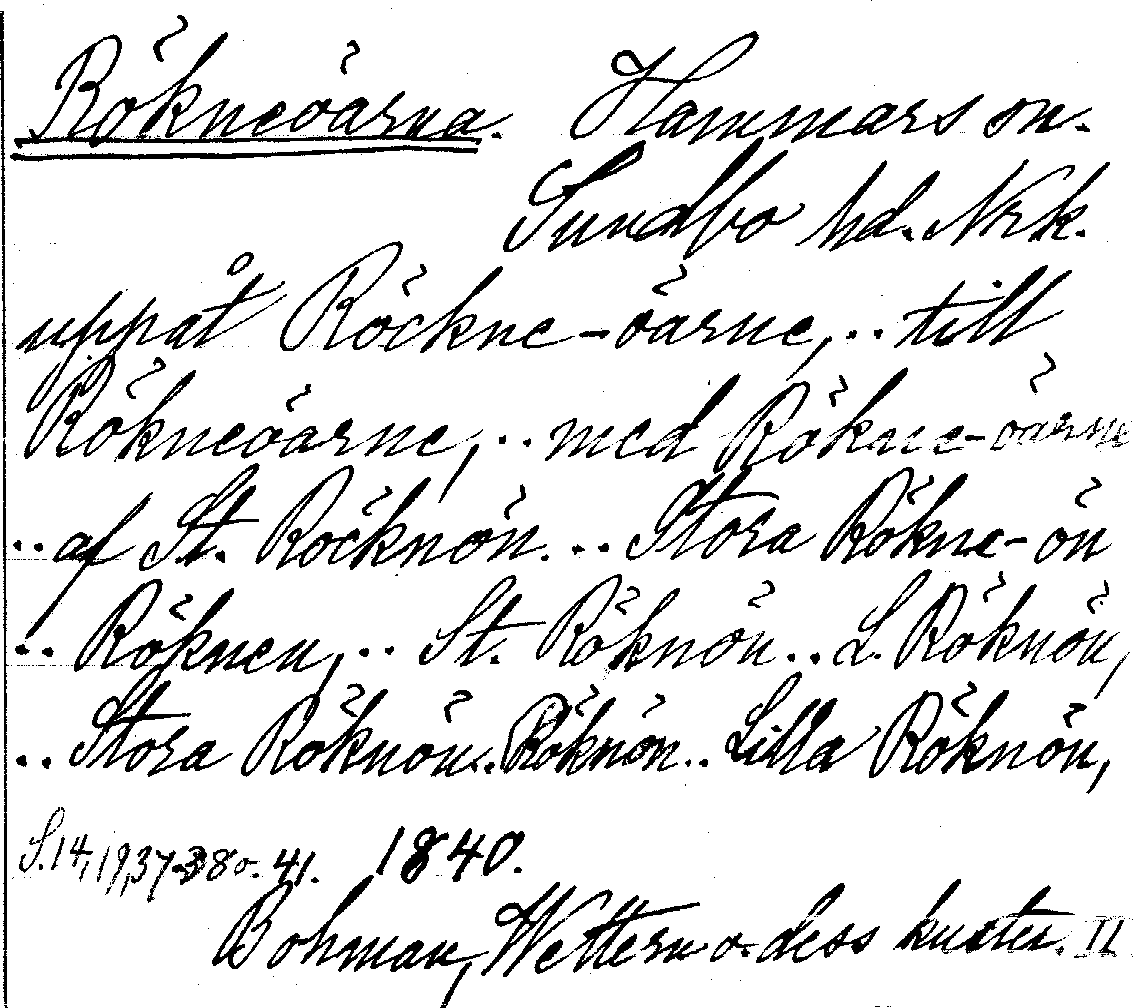 Rökneöarna. Hammars sn.
Sundbo hd. Nrk.
uppåt Röckne-öarne, .. till
Rökneöarne, .. med Rökne-öarne
.. af St. Röcknön. .. Stora Rökne-ön
.. Röknen, .. St. Röknön .. L. Röknön,
.. Stora Röknön .. Röknön .. Lilla Röknön,
S. 14, 19, 37-38 o. 41. 1840.
Bohman, Wettern o. dess kuster. II